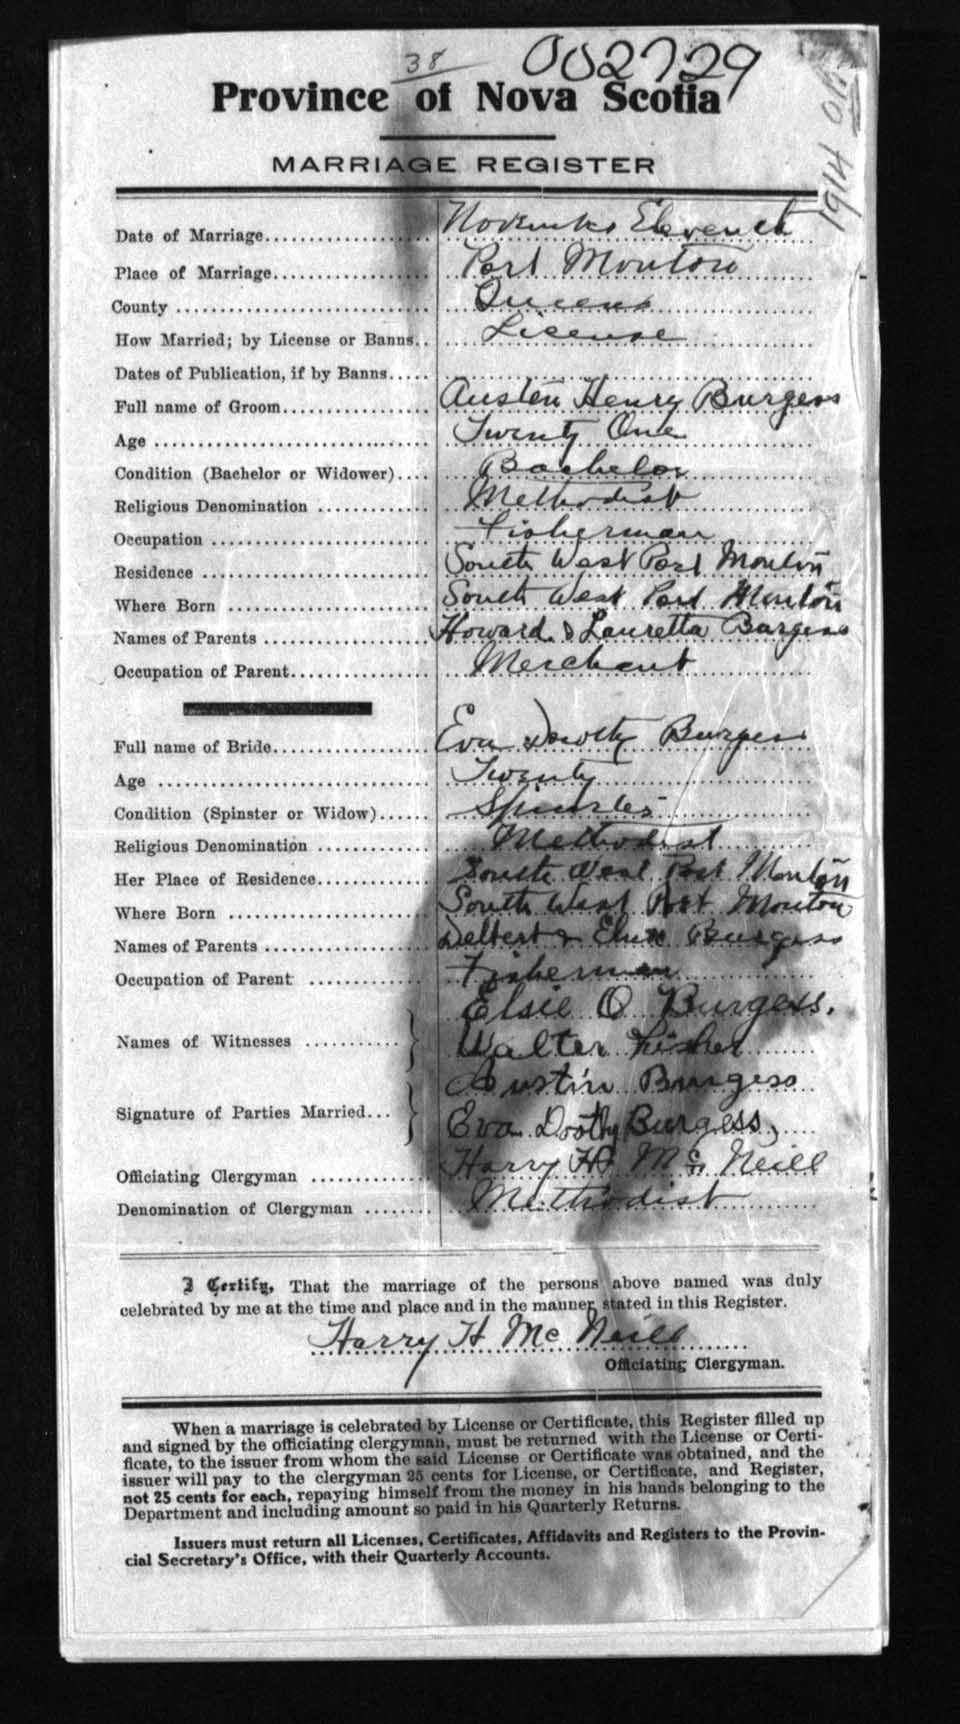 38 002729
Province of Nova Scotia
1914
MARRIAGE REGISTER
Date of Marriage November Eleventh
Place of Marriage Port Mouton
County Queens
How Married; by License or Banns License
Dates of Publication, if by Banns
Full name of Groom Austen Henry Burgess
Age Twenty One
Condition (Bachelor or Widower) Bachelor
Religious Denomination Methodist
Occupation Fisherman
Residence South West Port Mouton
Where Born South West Port Mouton
Names of Parents Howard & Lauretta Burgess
Occupation of Parent Merchant
Full name of Bride Eva Dorothy Burgess
Age Twenty
Condition (Spinster or Widow) Spinster
Religious Denomination Methodist
Her Place of Residence South West Port Mouton
Where Born South West Port Mouton
Names of Parents Delbert & Burgess
Occupation of Parent Fisherman
Names of Witnesses Elsie O Burgess.
Walter Fisher
Signature of Parties Married Austin Burgess
Eva Dorothy Burgess,
Officiating Clergyman Harry H Mc Neill
Denomination of Clergyman Methodist
I Certify, That the marriage of the persons above named was duly
celebrated by me at the time and place and in the manner stated in this Register.
Harry H Mc Neill
Officiating Clergyman.
When a marriage is celebrated by License or Certificate, this Register filled up
and signed by the officiating clergyman, must be returned with the License or Certi-
ficate, to the issuer from whom the said License or Certificate was obtained, and the
issuer will pay to the clergyman 25 cents for License, or Certificate, and Register,
not 25 cents for each, repaying himself from the money in his hands belonging to the
Department and including amount so paid in his Quarterly Returns.
Issuers must return all Licenses, Certificates, Affidavits and Registers to the Provin-
cial Secretary's Office, with their Quarterly Accounts.